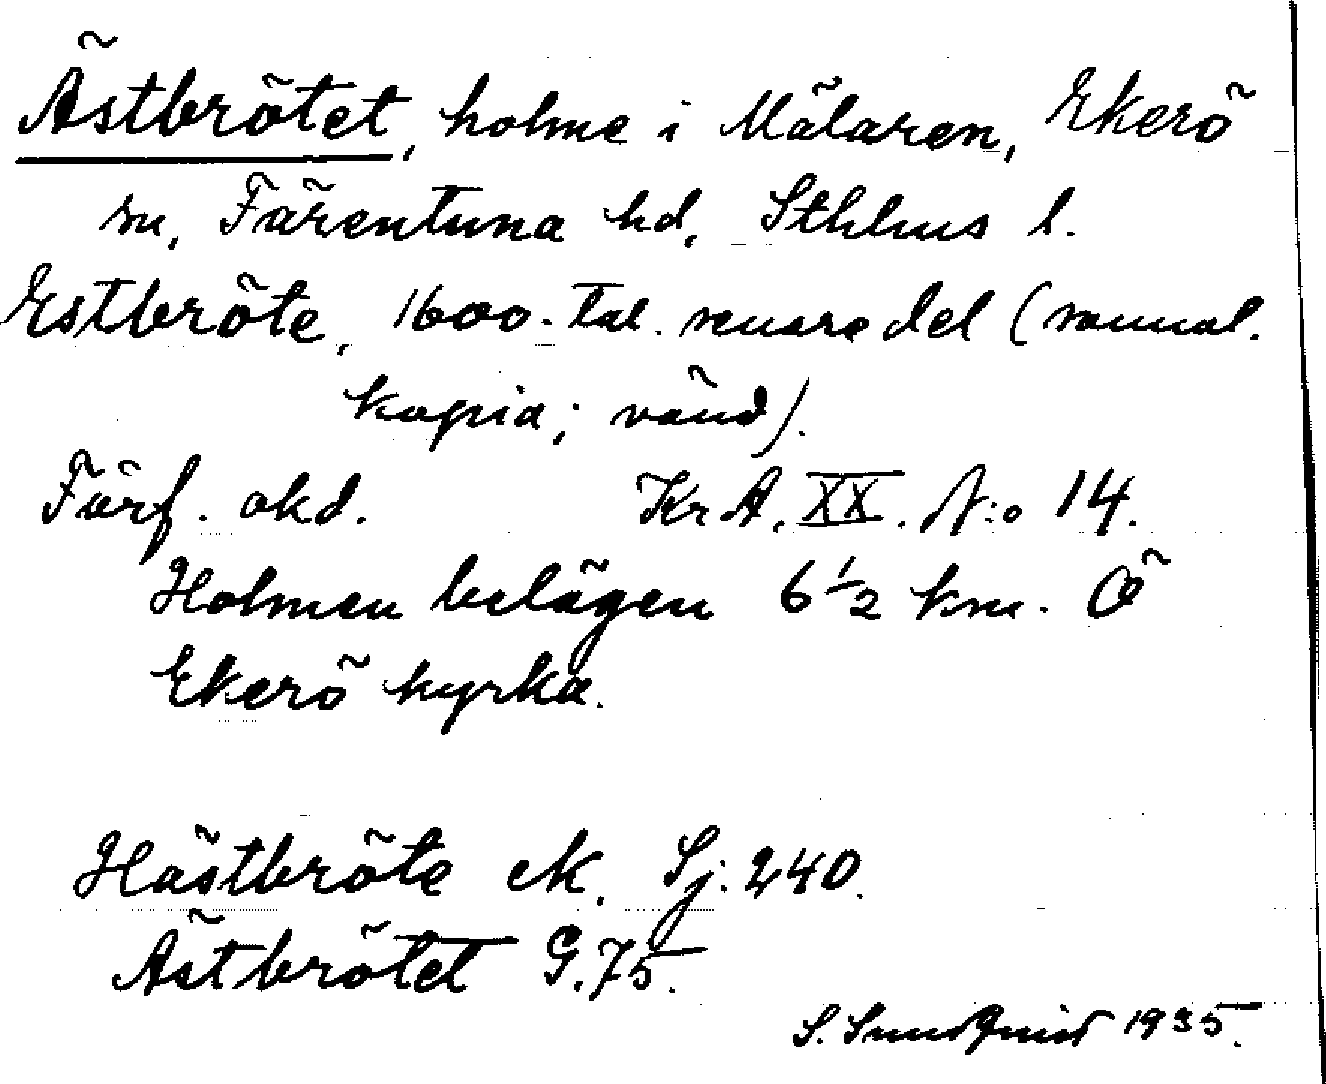 Ästbrötet, holme i Mälaren, Ekerö
sn, Färentuna hd, Sthlms l.
Estbröte, 1600-tal. senare del (samal.
kopia; vänd).
Förf. okd. KrA. XX. N:o 14.
Holmen belägen 6 1/2 km. Ö
Ekerö kyrka.
Hästbröte ek. Sj. 240.
Ästbrötet G. 75.
S. Sundquist 1935.